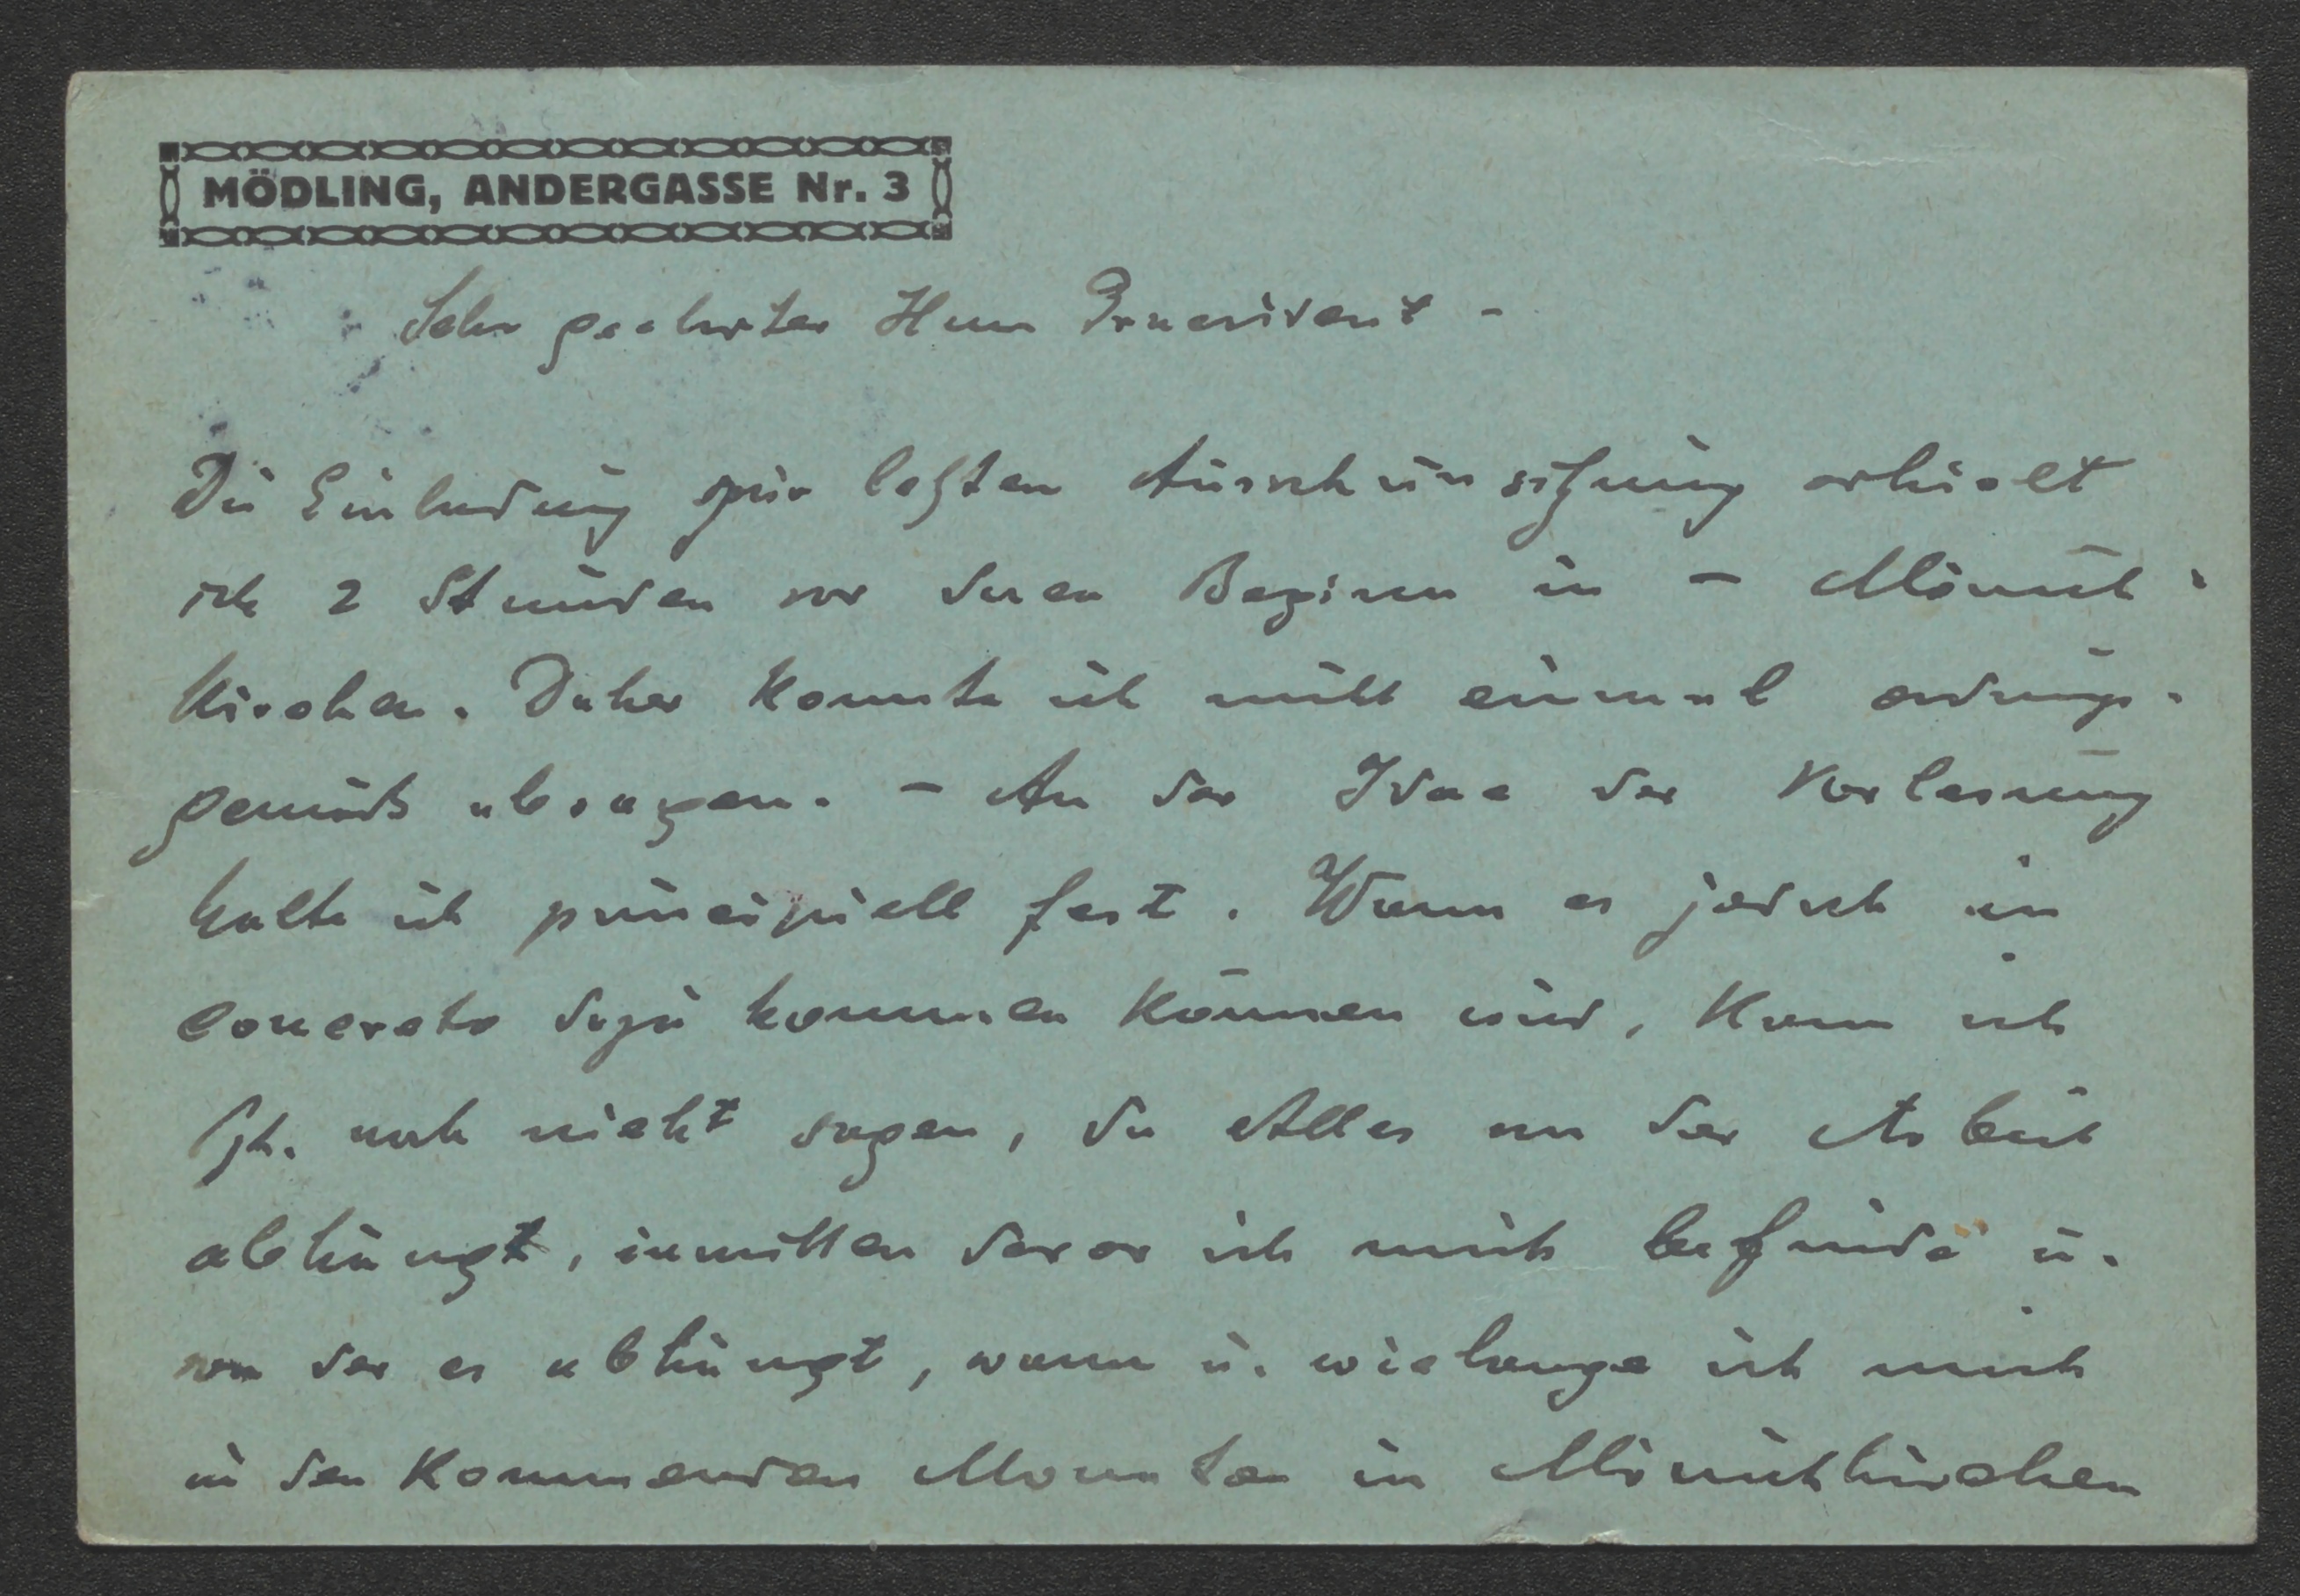 MÖDLING, ANDERGASSE Nr. 3
Sehr geehrter Herr Praesident -
Die Einladung zur letzten Ausschussitzung erhielt
ich 2 Stunden vor deren Beginn in - Mönich-
kirchen. Daher konnte ich nicht einmal ordnungs-
gemäß absagen. - An der Idee der Vorlesung
halte ich principiell fest. Wann es jedoch in
concreto dazu kommen können wird, kann ich
noch nicht sagen, da Alles von der Arbeit
abhängt, inmitten derer ich mich befinde u.
von der es abhängt, wann u. wielange ich mich
in den kommenden Monaten in Mönichkirchen